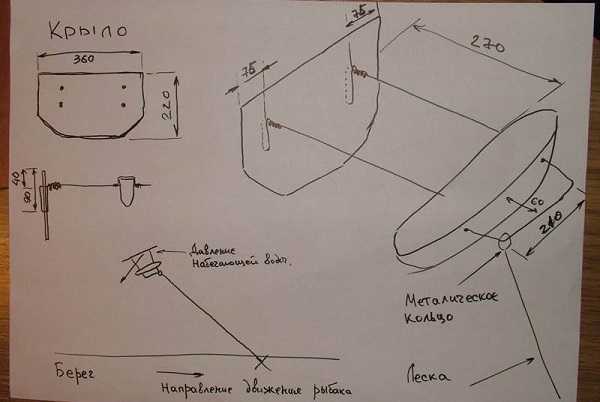 Крыло
360
220
75
75
270
40
80
60
210
Давление
Набегающей воды.
Металическое
кольцо
Леска
Берег
Направление движения рыбака